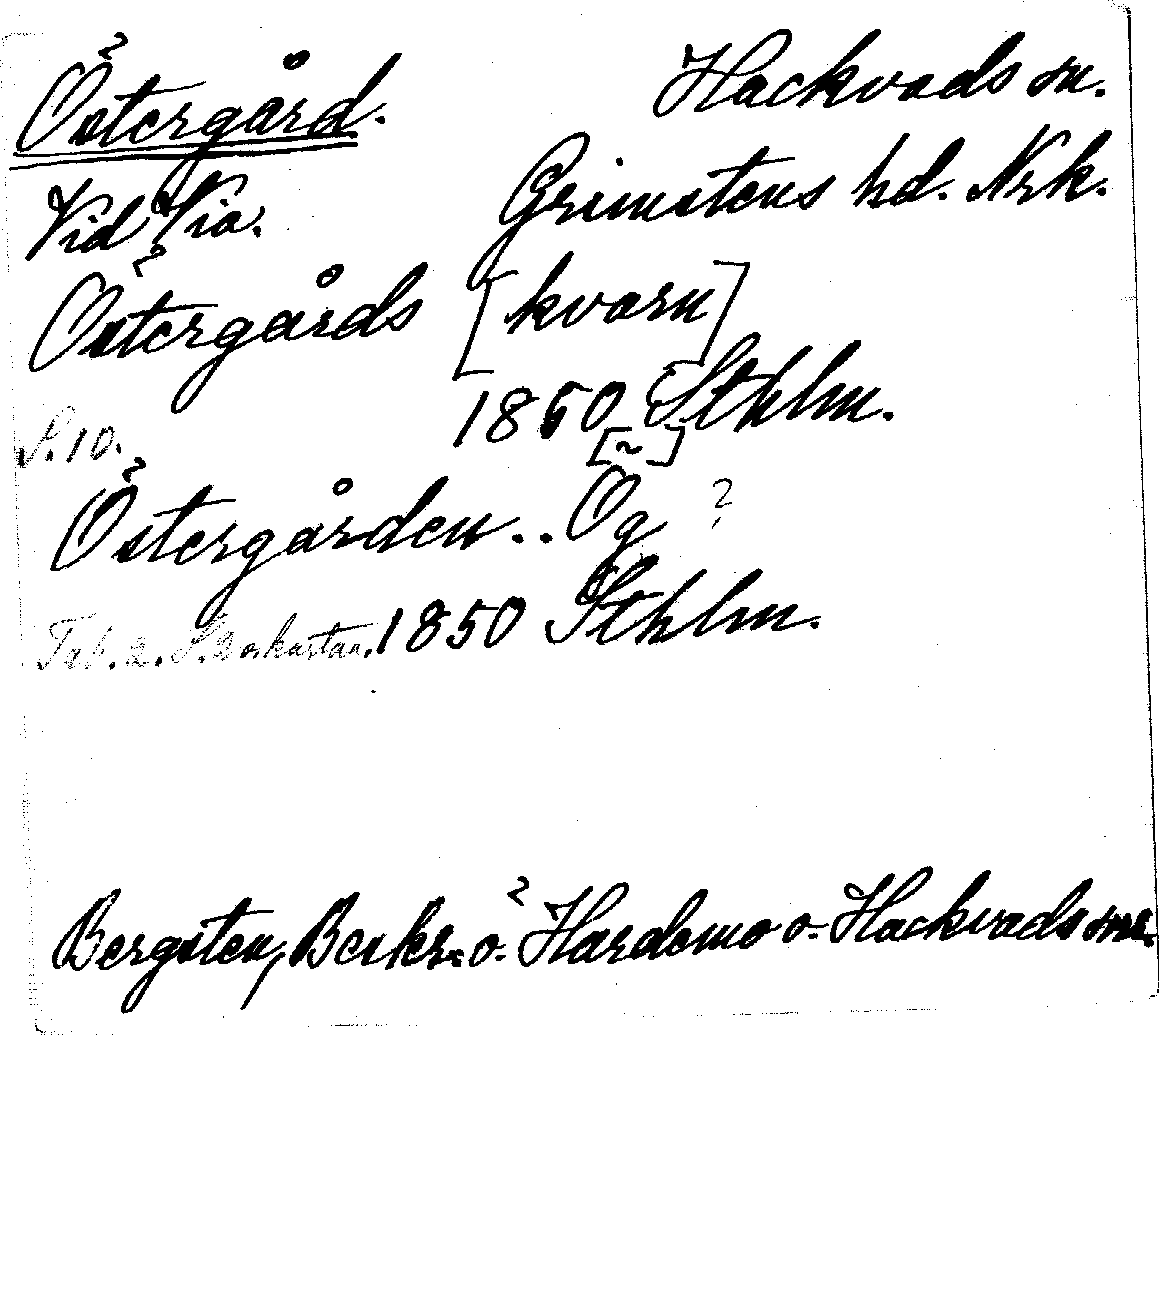 Östergård. Hackvads sn.
Vid Via. Grimstens hd. Nrk.
Östergårds [kvarn]
S. 10. 1850 Sthlm.
[~]
Östergården.. Ög ?
Tab. 2. S. 2 o kartan. 1850 Sthlm.
Bergsten, Beskr. ö. Hardemo o. Hackvads snr.